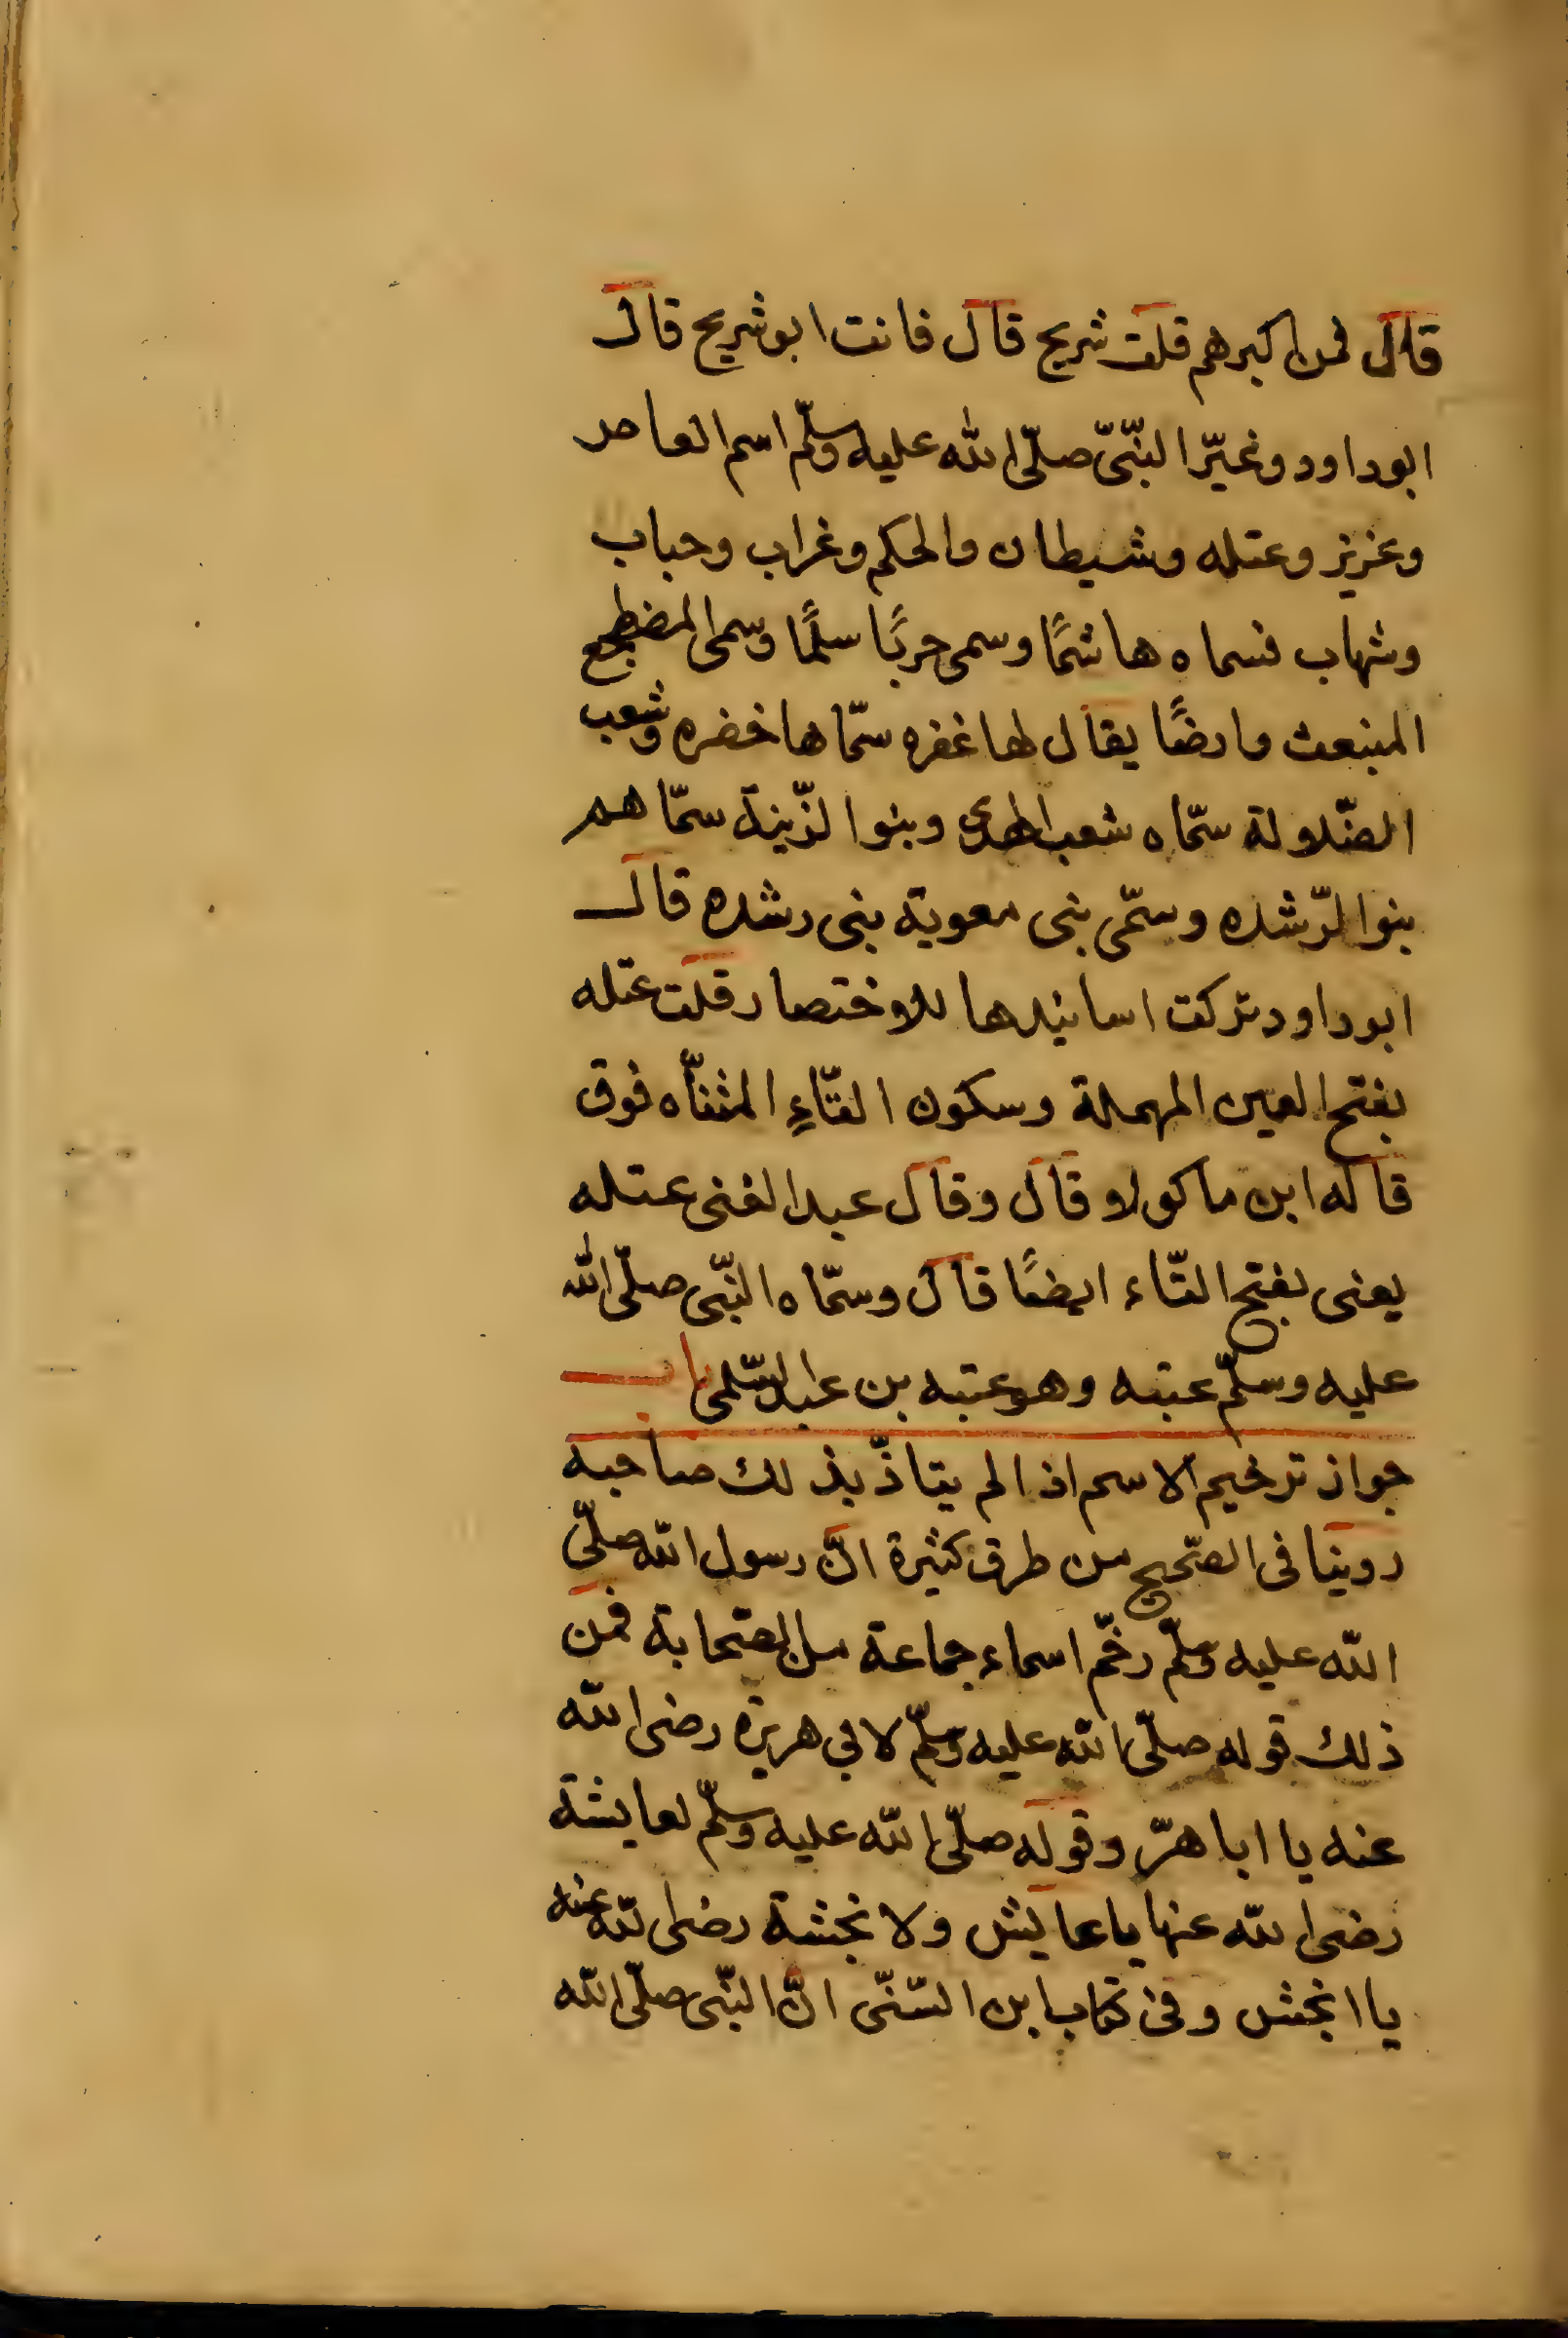 قال فمن اكبرهم قلت شريح قال فانت ابو شريح قال
ابو داود وغيّر النبّيّ صلّى الله عليه وسلّم اسم العاص
وعزيز وعتله وشيطان والحكم وغراب وحباب
وشهاب فسماه هاشمًا وسمى حربًا سلمًا وسمى المضطجع
المنبعث وارضًا يقال لها غفره سمّاها خضره وشعب
الضّلالة سمّاه شعب الهدى وبنوا لزّينة سمّاهم
بنوا لرّشده وسمّى بنى معوية بنى رشده قال
ابو داود تركت اسانيدها للاختصار قلت عتله
بفتح العين المهملة وسكون التّاءِ المثنّاه فوق
قاله ابن ماكولا قال وقال عبد الغنى عتله
يعنى بفتح التّاء ايضًا قال وسمّاه النبّى صلّى الله
عليه وسلّم عتبه وهو عتبه بن عبد السّلمى باب
جواز ترخيم الاسم اذا لم يتاذّ بذلك صاحبه
روينا فى الصّحيح من طرق كثيرة انّ رسول الله صلّى
الله عليه وسلّم رخّم اسماء جماعة من الصّحابة فمن
ذلك قوله صلّى الله عليه وسلّم لابي هريرة رضى الله
عنه يا ابا هرّ وقوله صلّى الله عليه وسلّم لعايشة
رضى الله عنها يا عايش ولانجشة رضى الله عنه
يا انجش وفى كتاب ابن السّنّى انّ النبّى صلّى الله